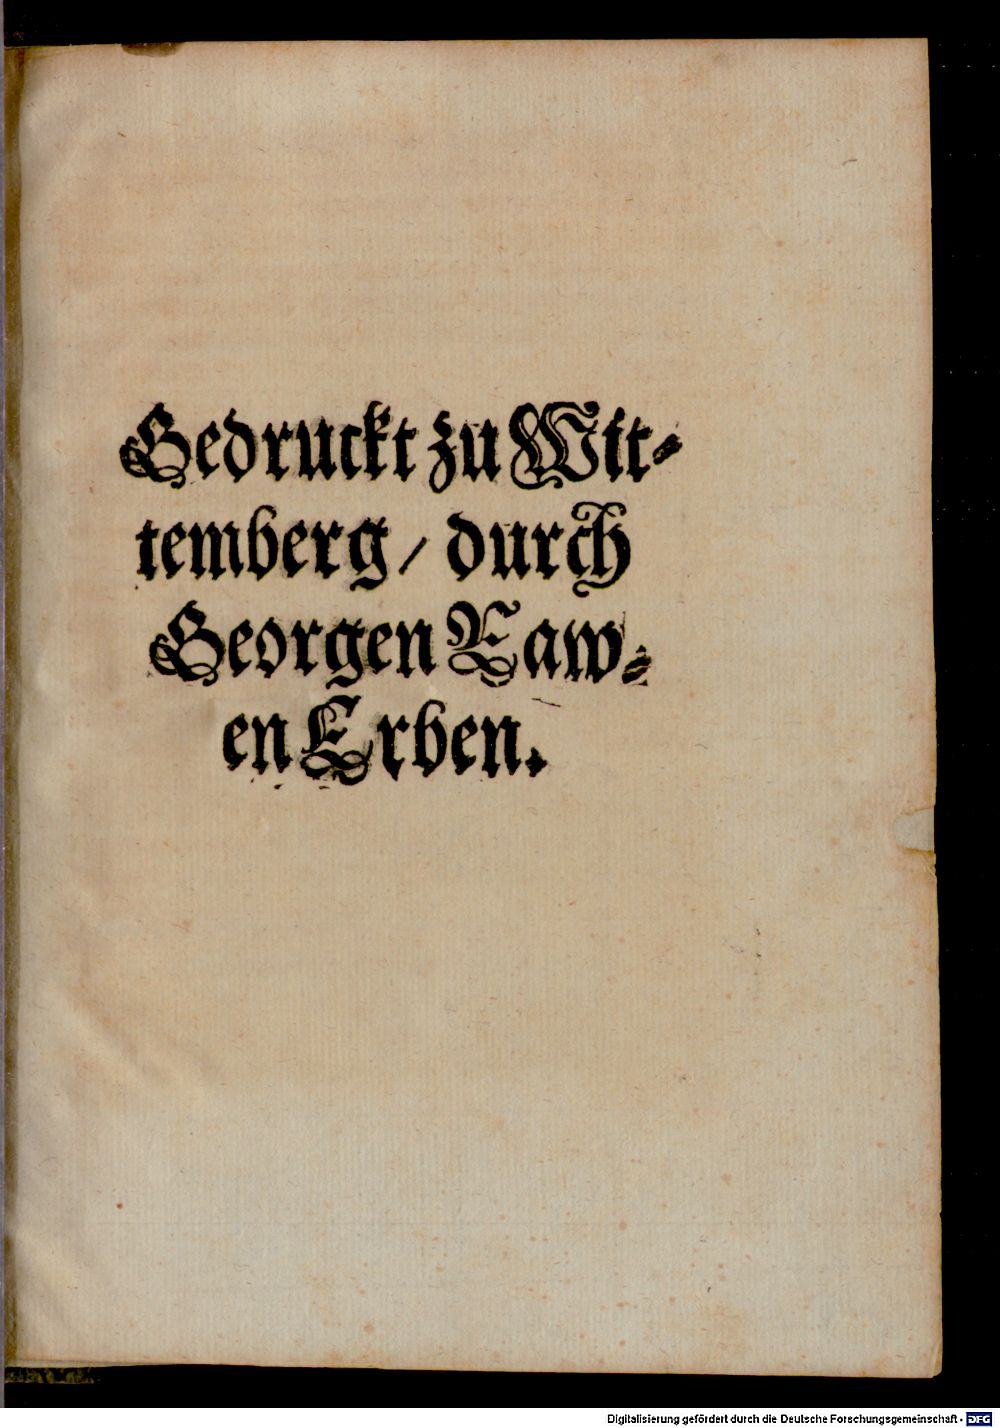 Gedruckt zu Wit⸗
temberg / durch
Georgen Raw⸗
en Erben.
Digitalisierung gefördert durch die Deutsche Forschungsgemeinschaft - DFG